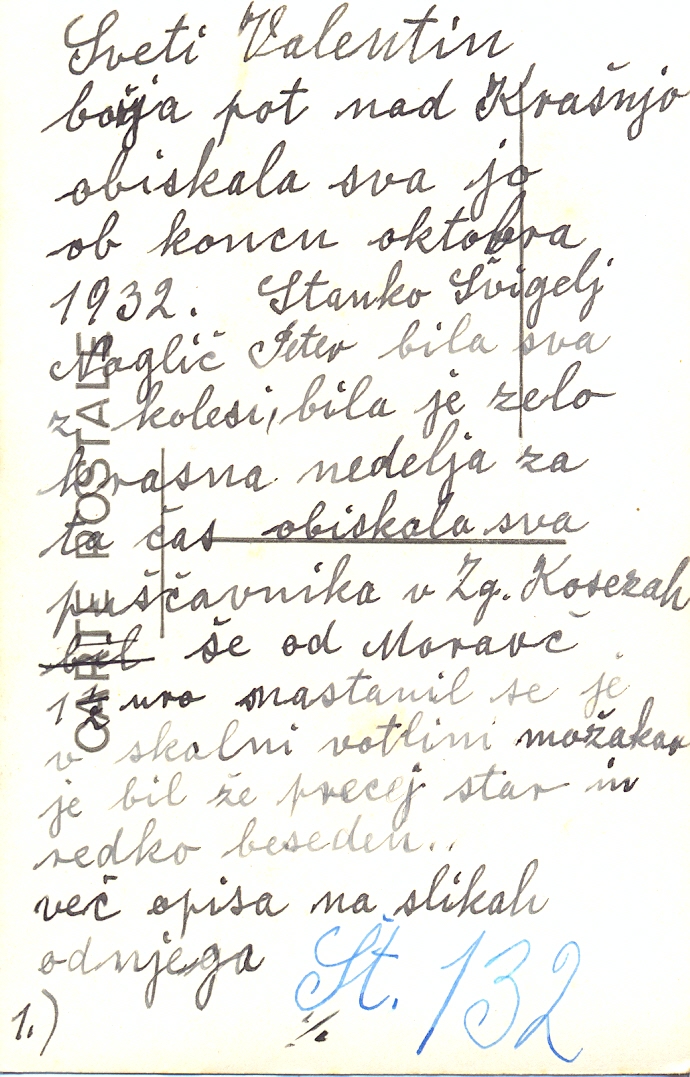 Sveti Valentin
božja pot nad Krašnjo
obiskala sva jo
ob koncu oktobra
1932. Stanko Švigelj
Naglič Peter bila sva
z kolesi, bila je zelo
krasna nedelja za
ta čas obiskala sva
puščavnika v Zg. Kosezah
bil še od Moravč
1 1/2 uro nastanil se je
v skalni votlini možakar
je bil že precej star in
redko beseden..
več opisa na slikah
od njega
Št. 132
1.) ./.
CARTE POSTALE